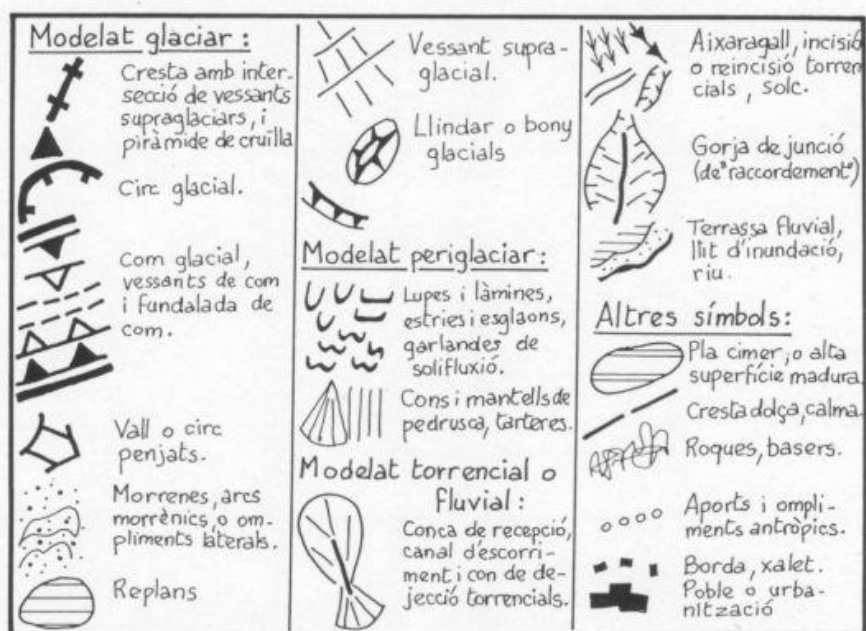 Modelat glaciar:
Cresta amb inter-
secció de vessants
supraglaciars, i
piràmide de cruïlla
Circ glacial.
Com glacial,
vessants de com
i fundalada de
com.
Vall o circ
penjats.
Morrenes, arcs
morrènics, o om-
pliments laterals.
Replans
Vessant supra-
glacial.
Llindar o bony
glacials
Modelat periglaciar:
Lupes i làmines,
estries i esglaons,
garlandes de
solifluxió.
Cons i mantells de
pedrusca, tarteres.
Modelat torrencial o
fluvial:
Conca de recepció,
canal d'escorri-
ment i con de de-
jecció torrencials.
Aixaragall, incisió
o reincisió torren-
cials, solc.
Gorja de junció
(de "raccordement")
Terrassa fluvial,
llit d'inundació,
riu.
Altres símbols:
Pla cimer, o alta
superfície madura.
Cresta dolça, calma.
Roques, basers.
Aports i ompli-
ments antròpics.
Borda, xalet.
Poble o urba-
nització